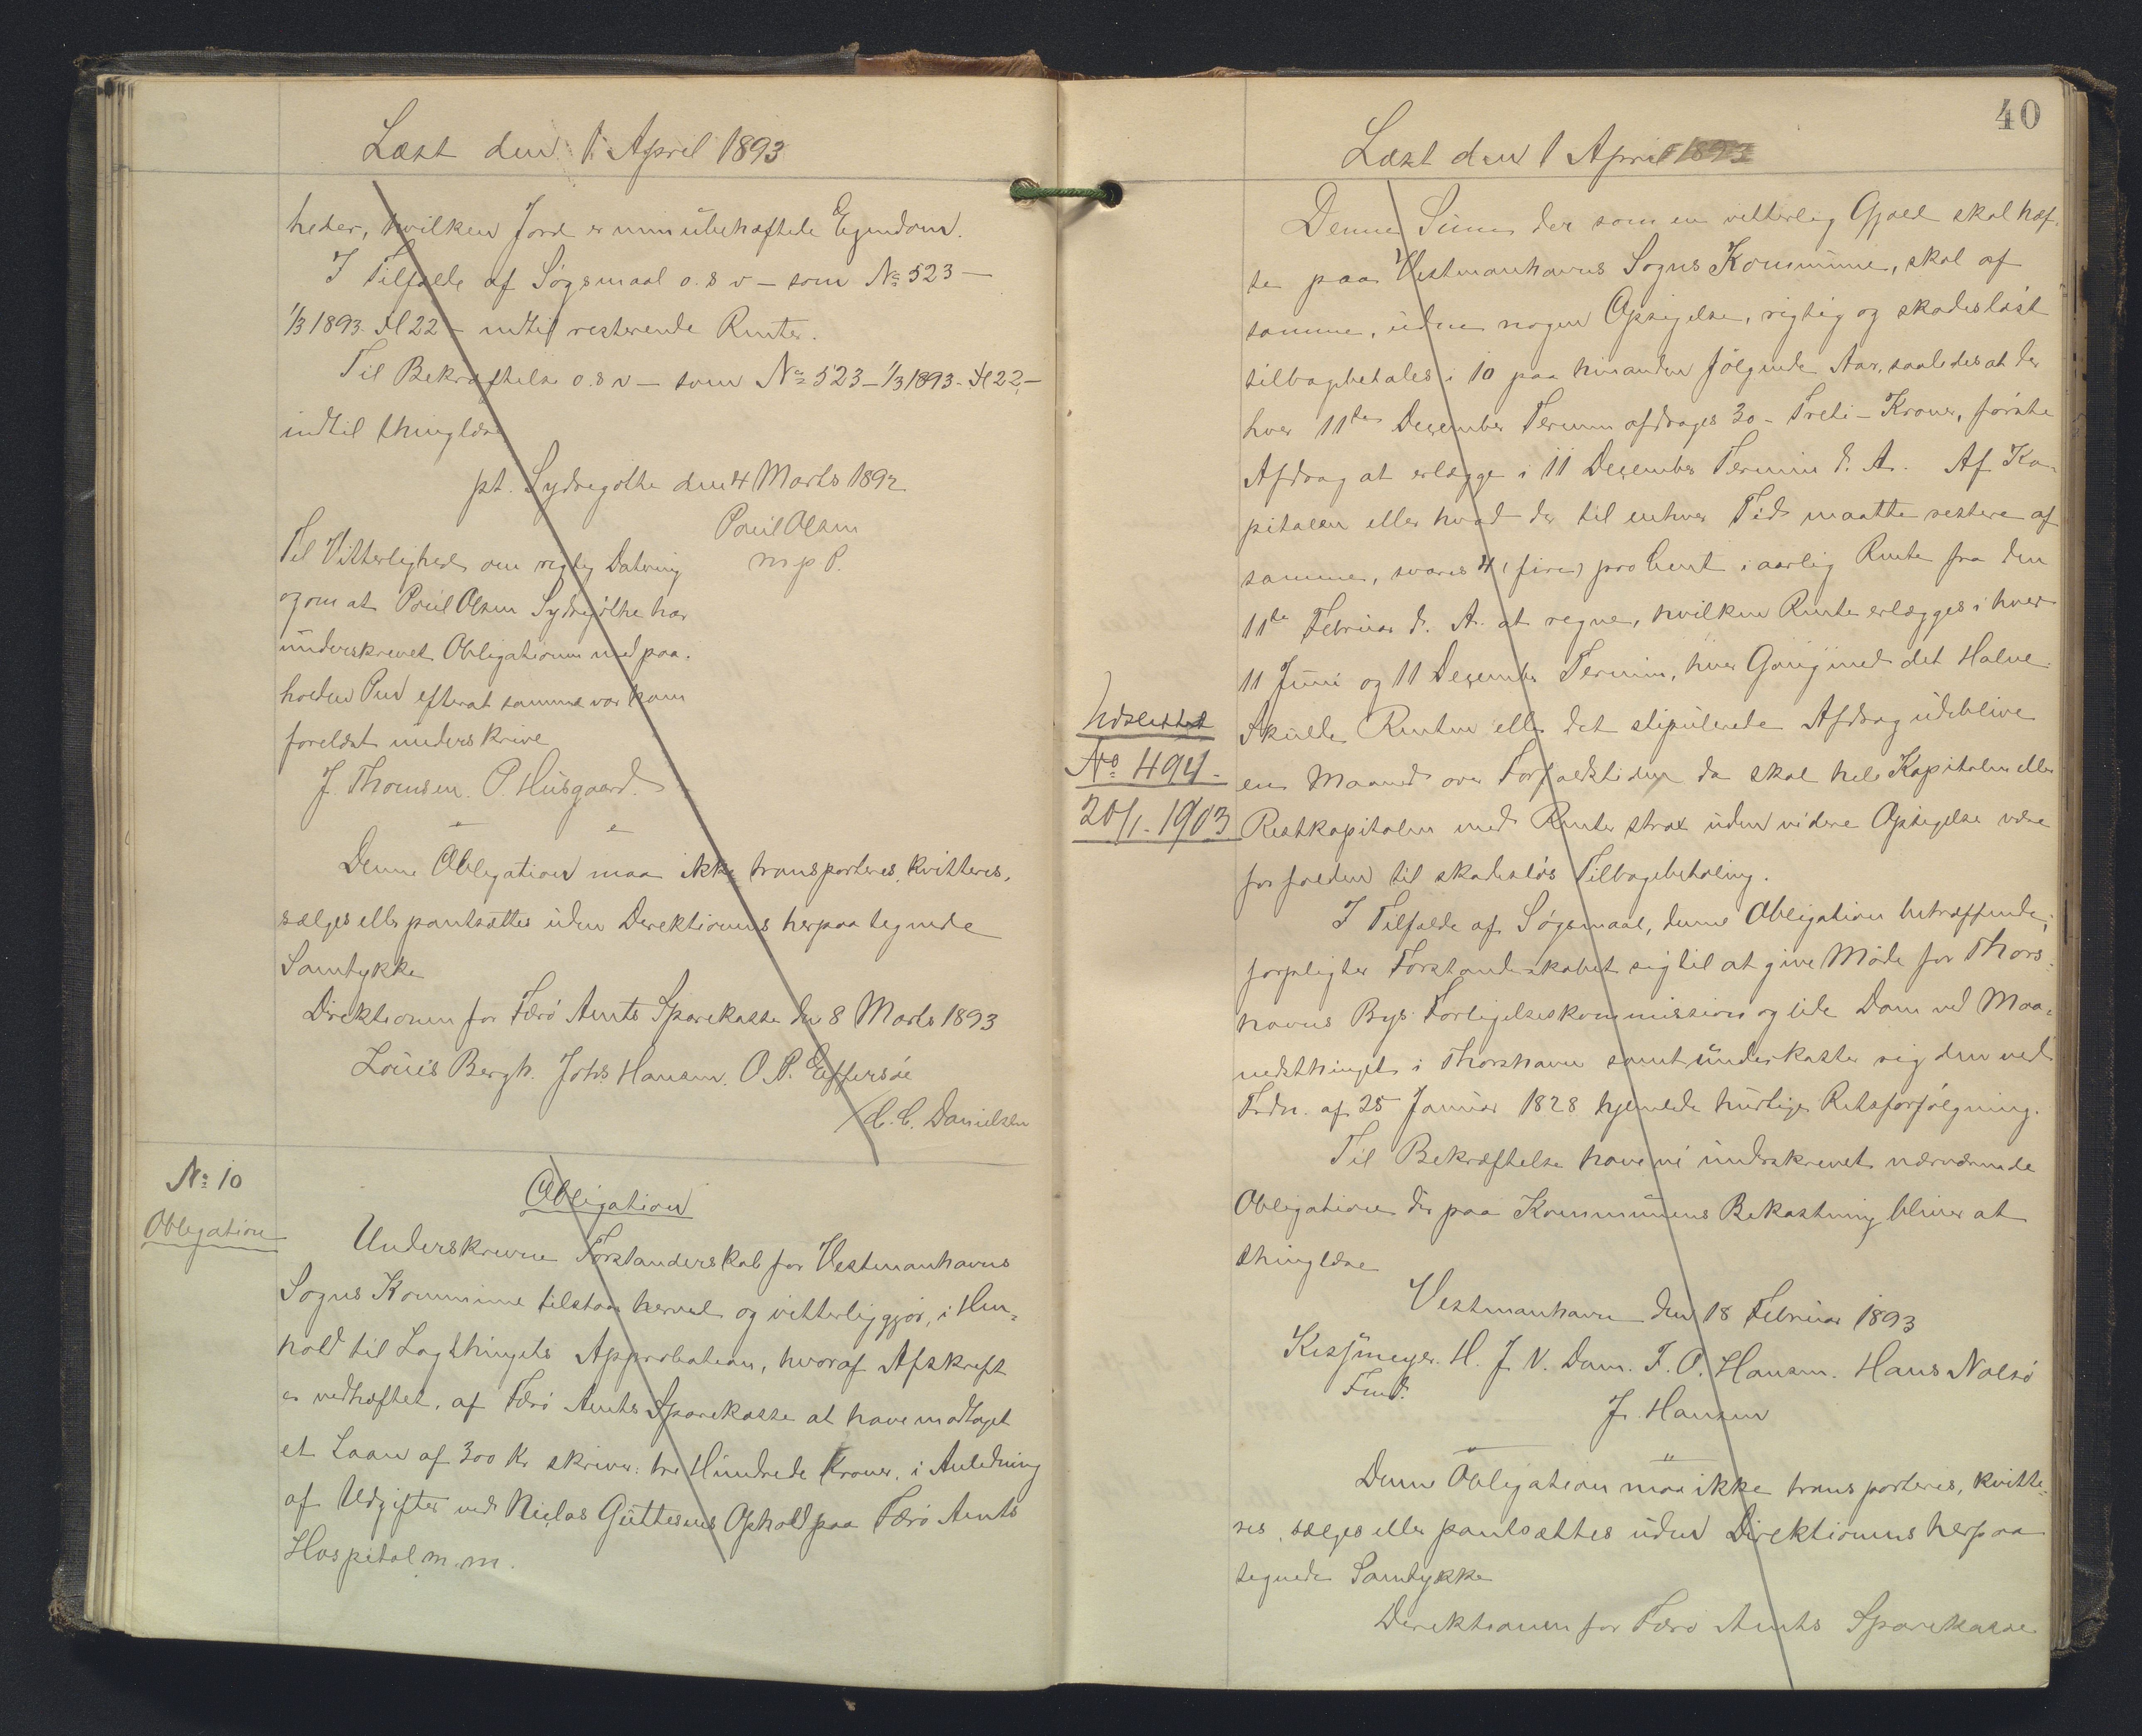 Læst den 1 April 1893
heder, hvilken Jord er min übehæftede Egendom.
I Tilfælde af Søgsmaal o. s v – som No 523 –
1/3 1893. Fol 22 – indtil resterende Renter.
Til Bekræftelse o. s v – som No 523 – 1/3 1893 – Fol 22 –
indtil thinglæse
pt. Sydregøthe den 4 Marts 1892
Poül Olsen
m p P.
Til Vitterlighed om rigtig Datering
og om at Poül Olsen Sydregøthe har
ünderskrevet Obligationen med paa-
holden Pen efterat samme var ham
forelæst ünderskrive
J. Thomsen. P. Hüsgaard.
Denne Obligation maa ikke transporteres, kvitteres,
sælges eller pantsættes üden Derektionens herpaa tegnede
Samtykke
Direktionen for Færø Amts Sparekasse den 8 Marts 1893
Loüis Bergh. Johs Hansen. O. P. Effersøe
/ C. C. Danielsen
No 10
Obligation
Obligation
Underskrevne Forstanderskab for Vestmanhavns
Sogns Kommüne tilstaar herved og vitterliggjør, i Hen-
hold til Lagthingets Approbation, hvoraf Afskrift
er vedhæftet, af Færø Amts Sparekasse at have modtaget
et Laan af 300 Kr skriver: tre Hündrede Kroner, i Anledning
af Udgifter ved Niclas Güttesens Ophold paa Færø Amts
Hospital m. m.
40
Læst den 1 April 1893
Denne Süm der som en vitterlig Gjæld skal hæf-
te paa Vestmanhavns Sogns Kommüne, skal af
samme, üden nogen Opsigelse, rigtig og skadesløst
tilbagebetales i 10 paa hinanden følgende Aar, saaledes at der
hver 11te Desember Termin afdrages 30 – Treti – Kroner, første
Afdrag at erlægge i 11 Desember Termin d. A. Af Ka-
pitalen eller hvad der til enhver Tid maatte restere af
samme, svares 4 (fire) pro Cent i aarlig Rente fra den
11te Febrüar d. A. at regne, hvilken Rente erlægges i hver
11 Jüni og 11 Desember Termin, hver Gang med det Halve.
Skülde Renten eller det stipülerede Afdrag üdeblive
en Maaned over Forfaldstiden da skal hele Kapitalen eller
Restkapitalen med Renter strax üden videre Opsigelse være
forfalden til skadesløs Tilbagebetaling.
Udslettet
No 494 –
20/1. 1903
I Tilfælde af Søgsmaal, denne Obligation betræffende,
forpligter Forstanderskabet sig til at give Møde for Thors-
havns Bys Forligelseskommission og lide Dom ved Maa-
nedsthinget i Thorshavn samt ünderkaster sig den ved
Frdn. af 25 Janüar 1828 hjemlede hürtige Retsforfølgning.
Til Bekræftelse have vi ünderskrevet nærværende
Obligation der paa Kommünens Bekostning bliver at
thinglæse
Vestmanhavn den 18 Febrüar 1893
H. J. V. Dam. F. O. Hansen. Hans Nolsø
Fmd.
J. Hansen
Denne Obligation maa ikke transporteres, kvitte-
res, sælges eller pantsættes üden Direktionens herpaa
tegnede Samtykke
Direktionen for Færø Amts Sparekasse